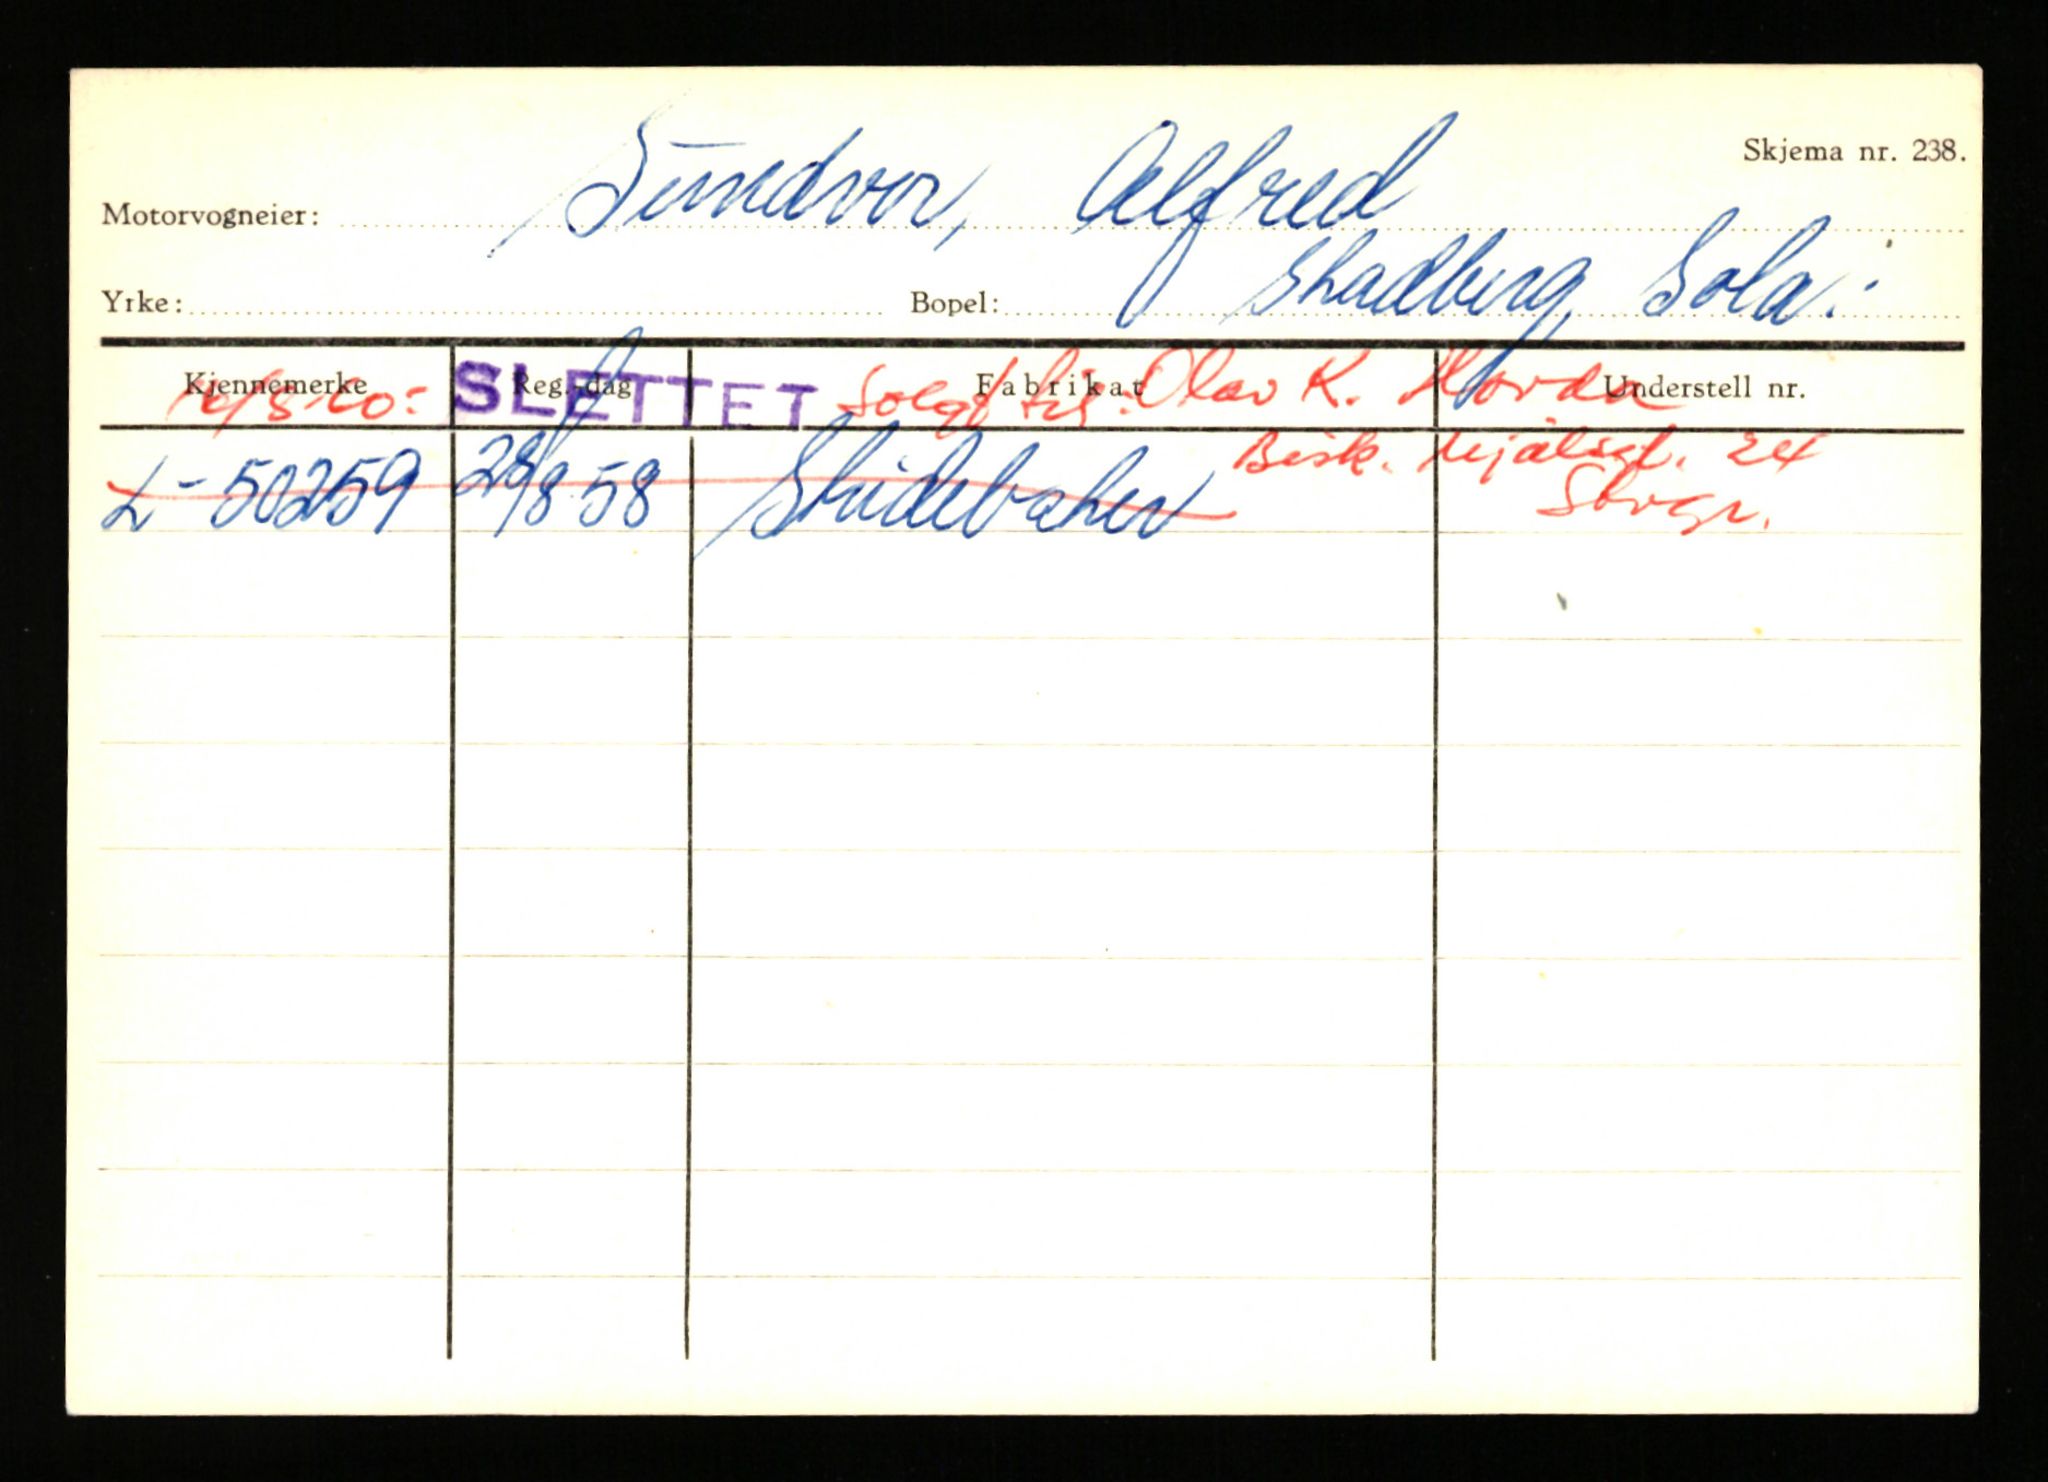 Skjema nr. 238.
Motorvogneier: Sundvor, Alfred
Yrke: Bopel: Skadberg, Sola.
Kjennemerke Reg.-dag Fabrikat Understell nr.
SLETTET Solgt til: Olav K. Horda
Bisk. Njålsgt. 24
L-50259 28/8 58 Studebaker
Stvgr.